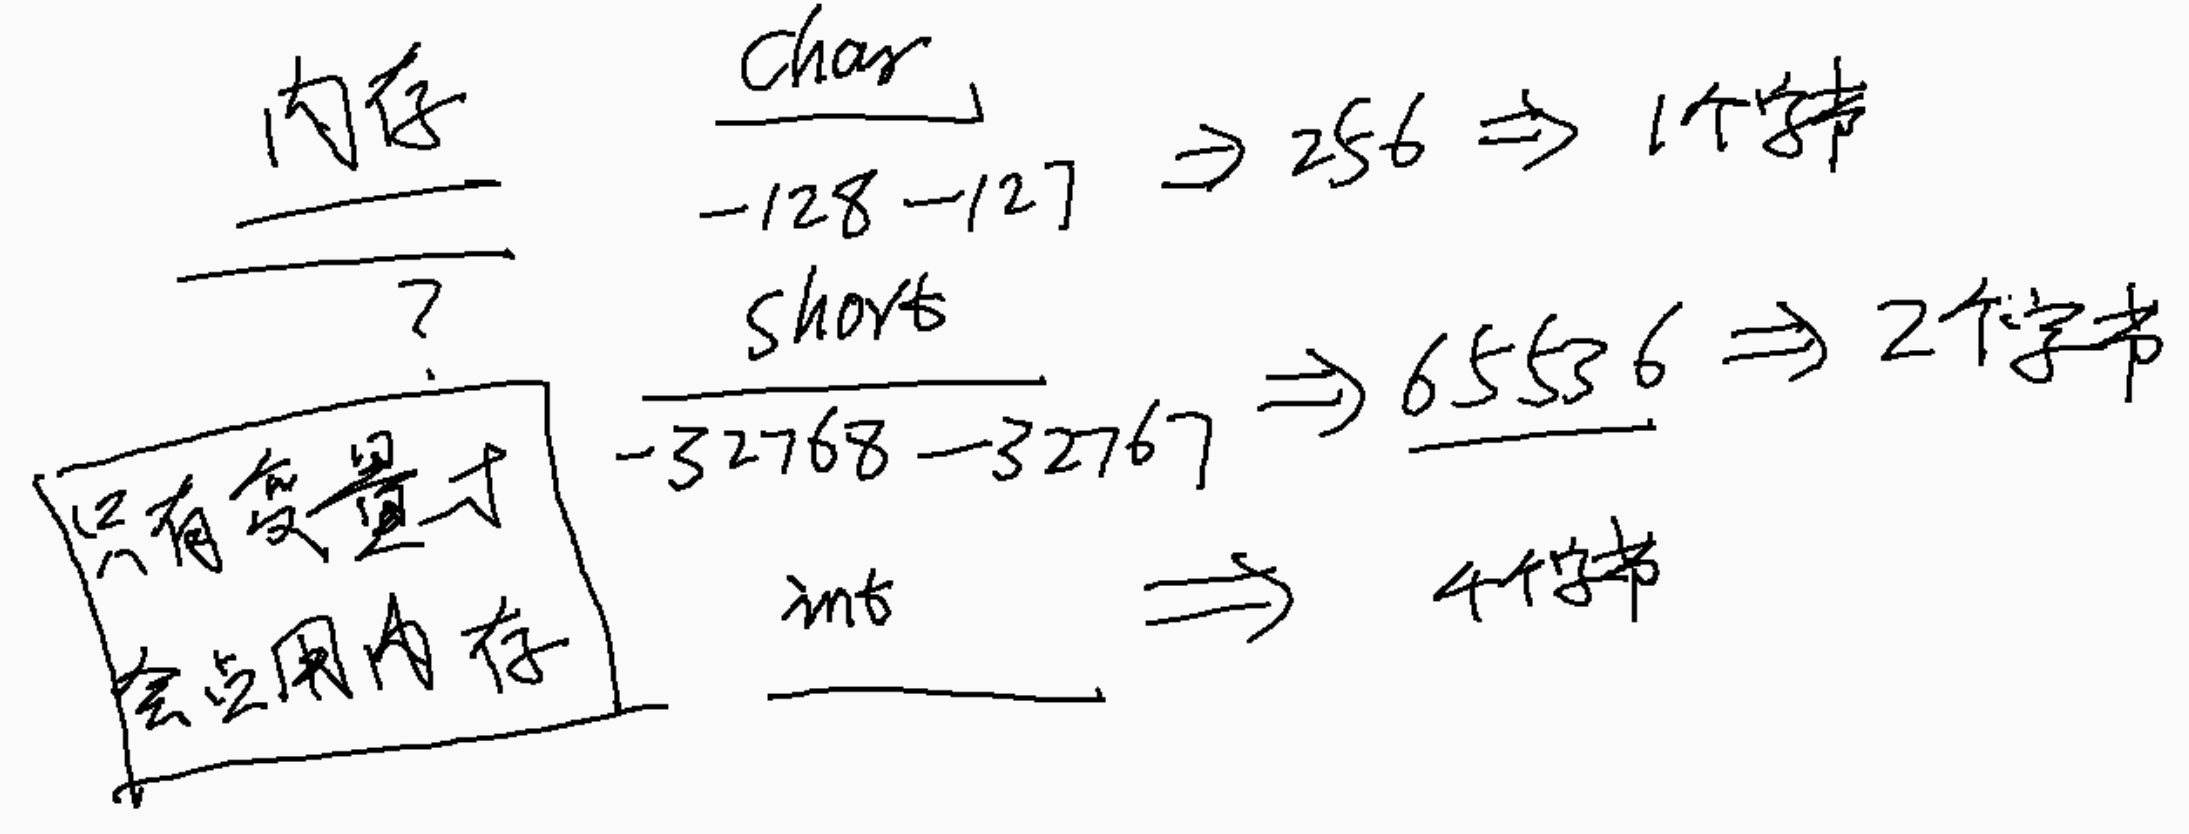 内存
?
只有变量才
会占用内存
char
-128 - 127 ⇒ 256 ⇒ 1个字节
short
-32768 - 32767 ⇒ 65536 ⇒ 2个字节
int ⇒ 4个字节